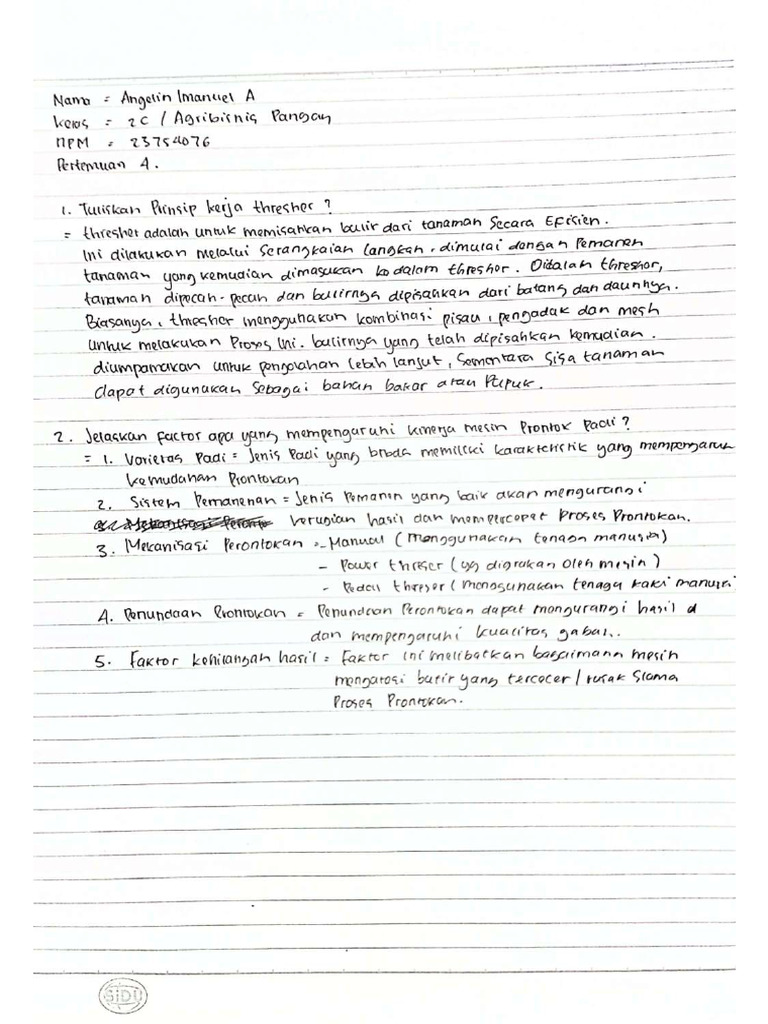 Nama = Angelin Imanuel A
Kelas = 2C / Agribisnis Pangan
NPM = 23754076
Pertemuan 4.
1. Tuliskan Prinsip kerja thresher ?
= thresher adalah untuk memisahkan bulir dari tanaman secara Efisien.
Ini dilakukan melalui serangkaian langkah, dimulai dengan Pemanen
tanaman yang kemudian dimasukan ke dalam thresher. Didalam thresher,
tanaman dipecah-pecah dan bulirnya dipisahkan dari batang dan daunnya.
Biasanya, thresher menggunakan kombinasi pisau, pengaduk dan mesh
untuk melakukan Proses Ini. bulirnya yang telah dipisahkan kemudian.
diumpamakan untuk pengolahan lebih lanjut, Sementara Sisa tanaman
dapat digunakan sebagai bahan bakar atau Pupuk.
2. Jelaskan factor apa yang mempengaruhi kinerja mesin Prontok Padi ?
= 1. Varietas Padi = Jenis Padi yang bbeda memiliki karakteristik yang mempengaruhi
kemudahan Prontokan
2. Sistem Pemanenan = Jenis Pemanen yang baik akan mengurangi
kerugian hasil dan mempercepat Proses Prontokan.
3. Mekanisasi Perontokan = - Manual (menggunakan tenaga manusia)
- Power threser (yg digrakan oleh mesin)
- Pedal threser (menggunakan tenaga kaki manusia
4. Penundaan Prontokan = Penundaan Perontokan dapat mengurangi hasil d
dan mempengaruhi kualitas gabah..
5. Faktor kehilangan hasil = Faktor ini melibatkan bagaimana mesin
mengatasi butir yang tercecer / rusak Slama
Proses Prontokan.
SIDU